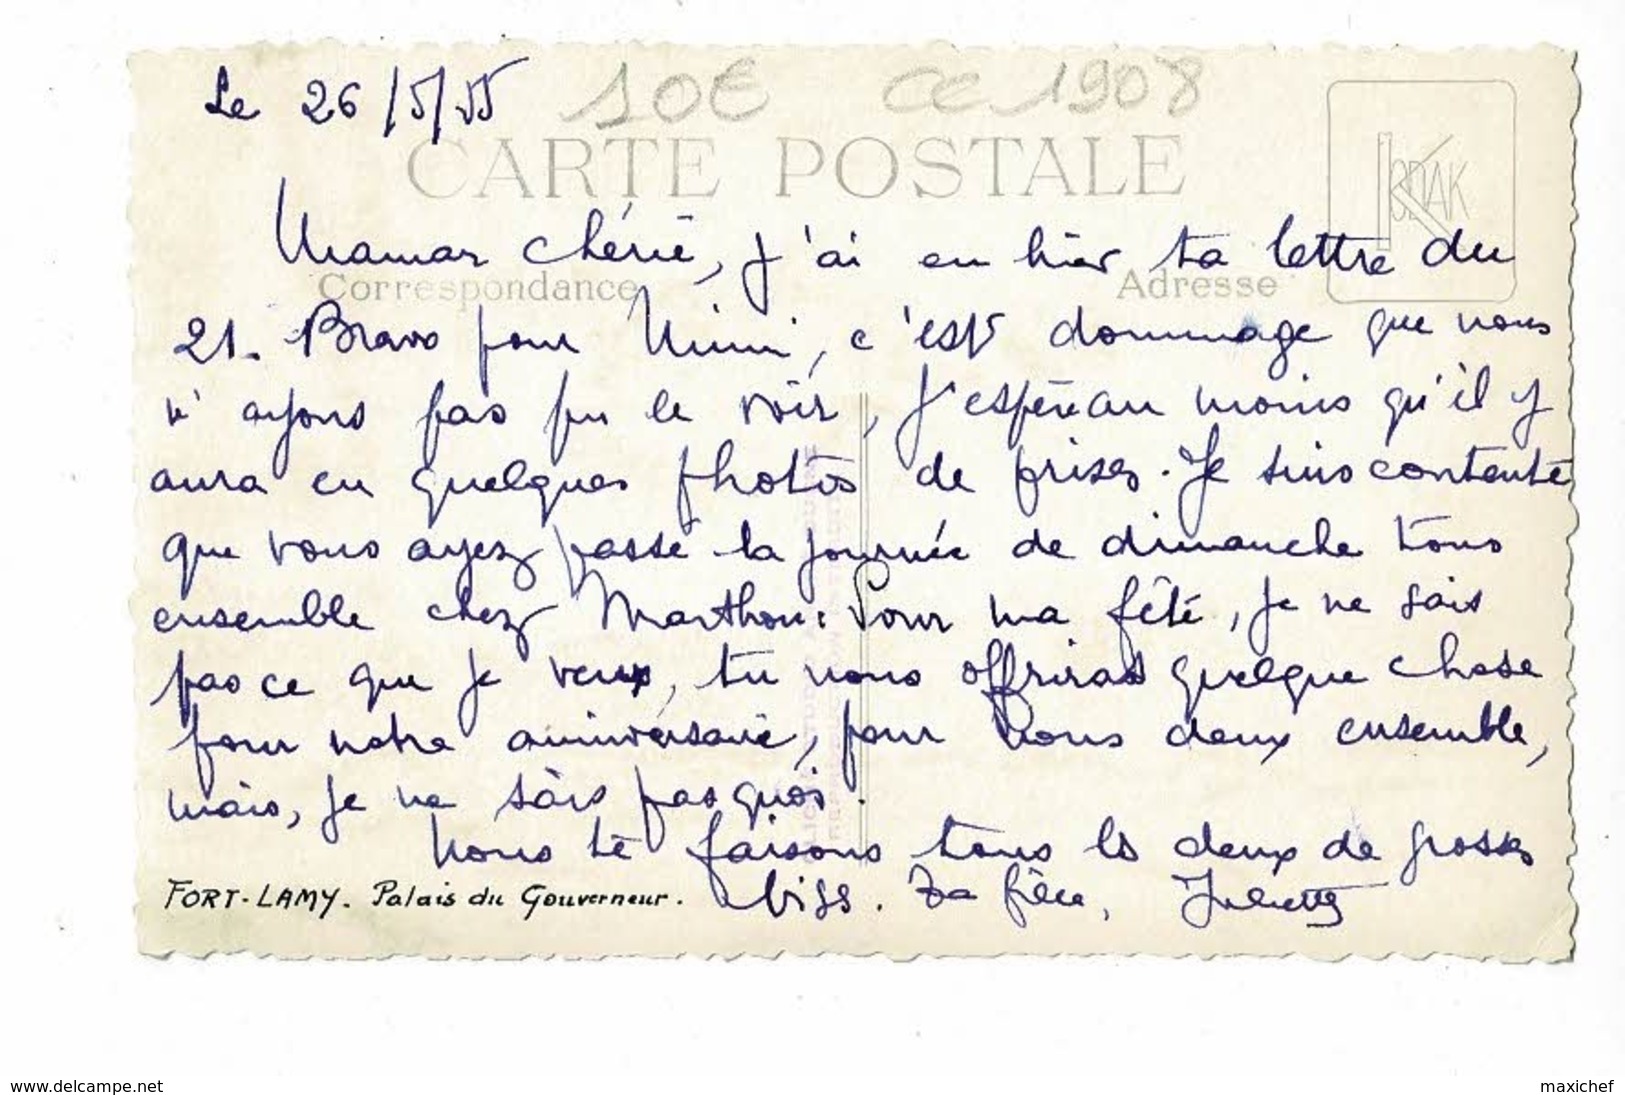 Le 26/5/55 10€ CC 1908
CARTE POSTALE
KODAK
Maman chérie, j'ai eu hier ta lettre du
Correspondance Adresse
21. Bravo pour Mimi, c'est dommage que nous
n'ayons pas pu le voir, j'espère au moins qu'il y
aura eu quelques photos de prises. Je suis contente
que vous ayez passé la journée de dimanche tous
ensemble chez Marthou. Pour ma fête, je ne sais
pas ce que je veux, tu nous offriras quelque chose
pour notre anniversaire, pour nous deux ensemble,
mais, je ne sais pas quoi.
Nous te faisons tous les deux de grosses
FORT-LAMY. Palais du Gouverneur. biss. Ta fille, Juliette
www.delcampe.net maxichef